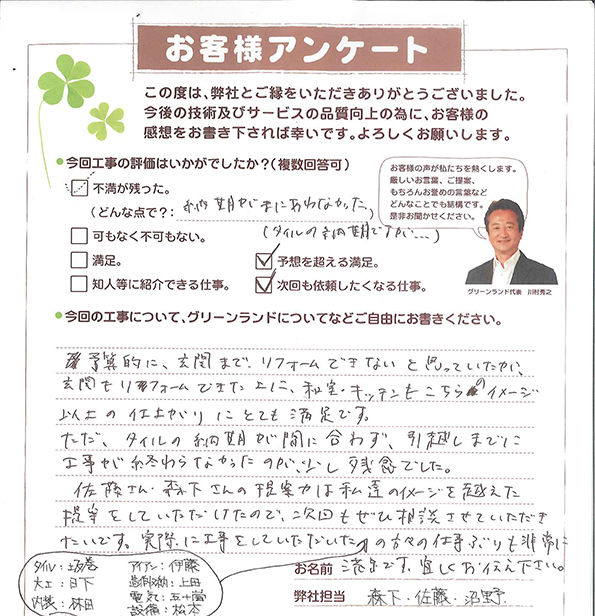 お客様アンケート
この度は、弊社とご縁をいただきありがとうございました。
今後の技術及びサービスの品質向上の為に、お客様の
感想をお書き下されば幸いです。よろしくお願いします。
●今回工事の評価はいかがでしたか?(複数回答可)
不満が残った。
(どんな点で?: 納期がまにあわなかった)
(タイルの納期ですが…)
可もなく不可もない。
満足。
予想を超える満足。
知人等に紹介できる仕事。
次回も依頼したくなる仕事。
お客様の声が私たちを熱くします。
厳しいお言葉、ご提案、
もちろんお誉めの言葉など
どんなことでも結構です。
是非お聞かせください。
グリーンランド代表 川村秀之
●今回の工事について、グリーンランドについてなどご自由にお書きください。
予算的に、玄関まで、リフォームできないと思っていたが、
玄関もリフォームできた上に、和室・キッチンもこちらのイメージ
以上の仕上がりにとても満足です。
ただ、タイルの納期が間に合わず、引越しまでに
工事が終わらなかったのが、少し残念でした。
佐藤さん・森下さんの提案力は私達のイメージを越えた
提案をしていただけたので、次回もぜひ相談させていただき
たいです。実際に工事をしていただいた方々の仕事ぶりも非常に
お名前 満足です。宜しくお伝え下さい。
タイル:坂巻
アイアン:伊藤
大工:日下
造作物:上田
内装:林田
電気:五十嵐
設備:松本
弊社担当 森下・佐藤・沼野